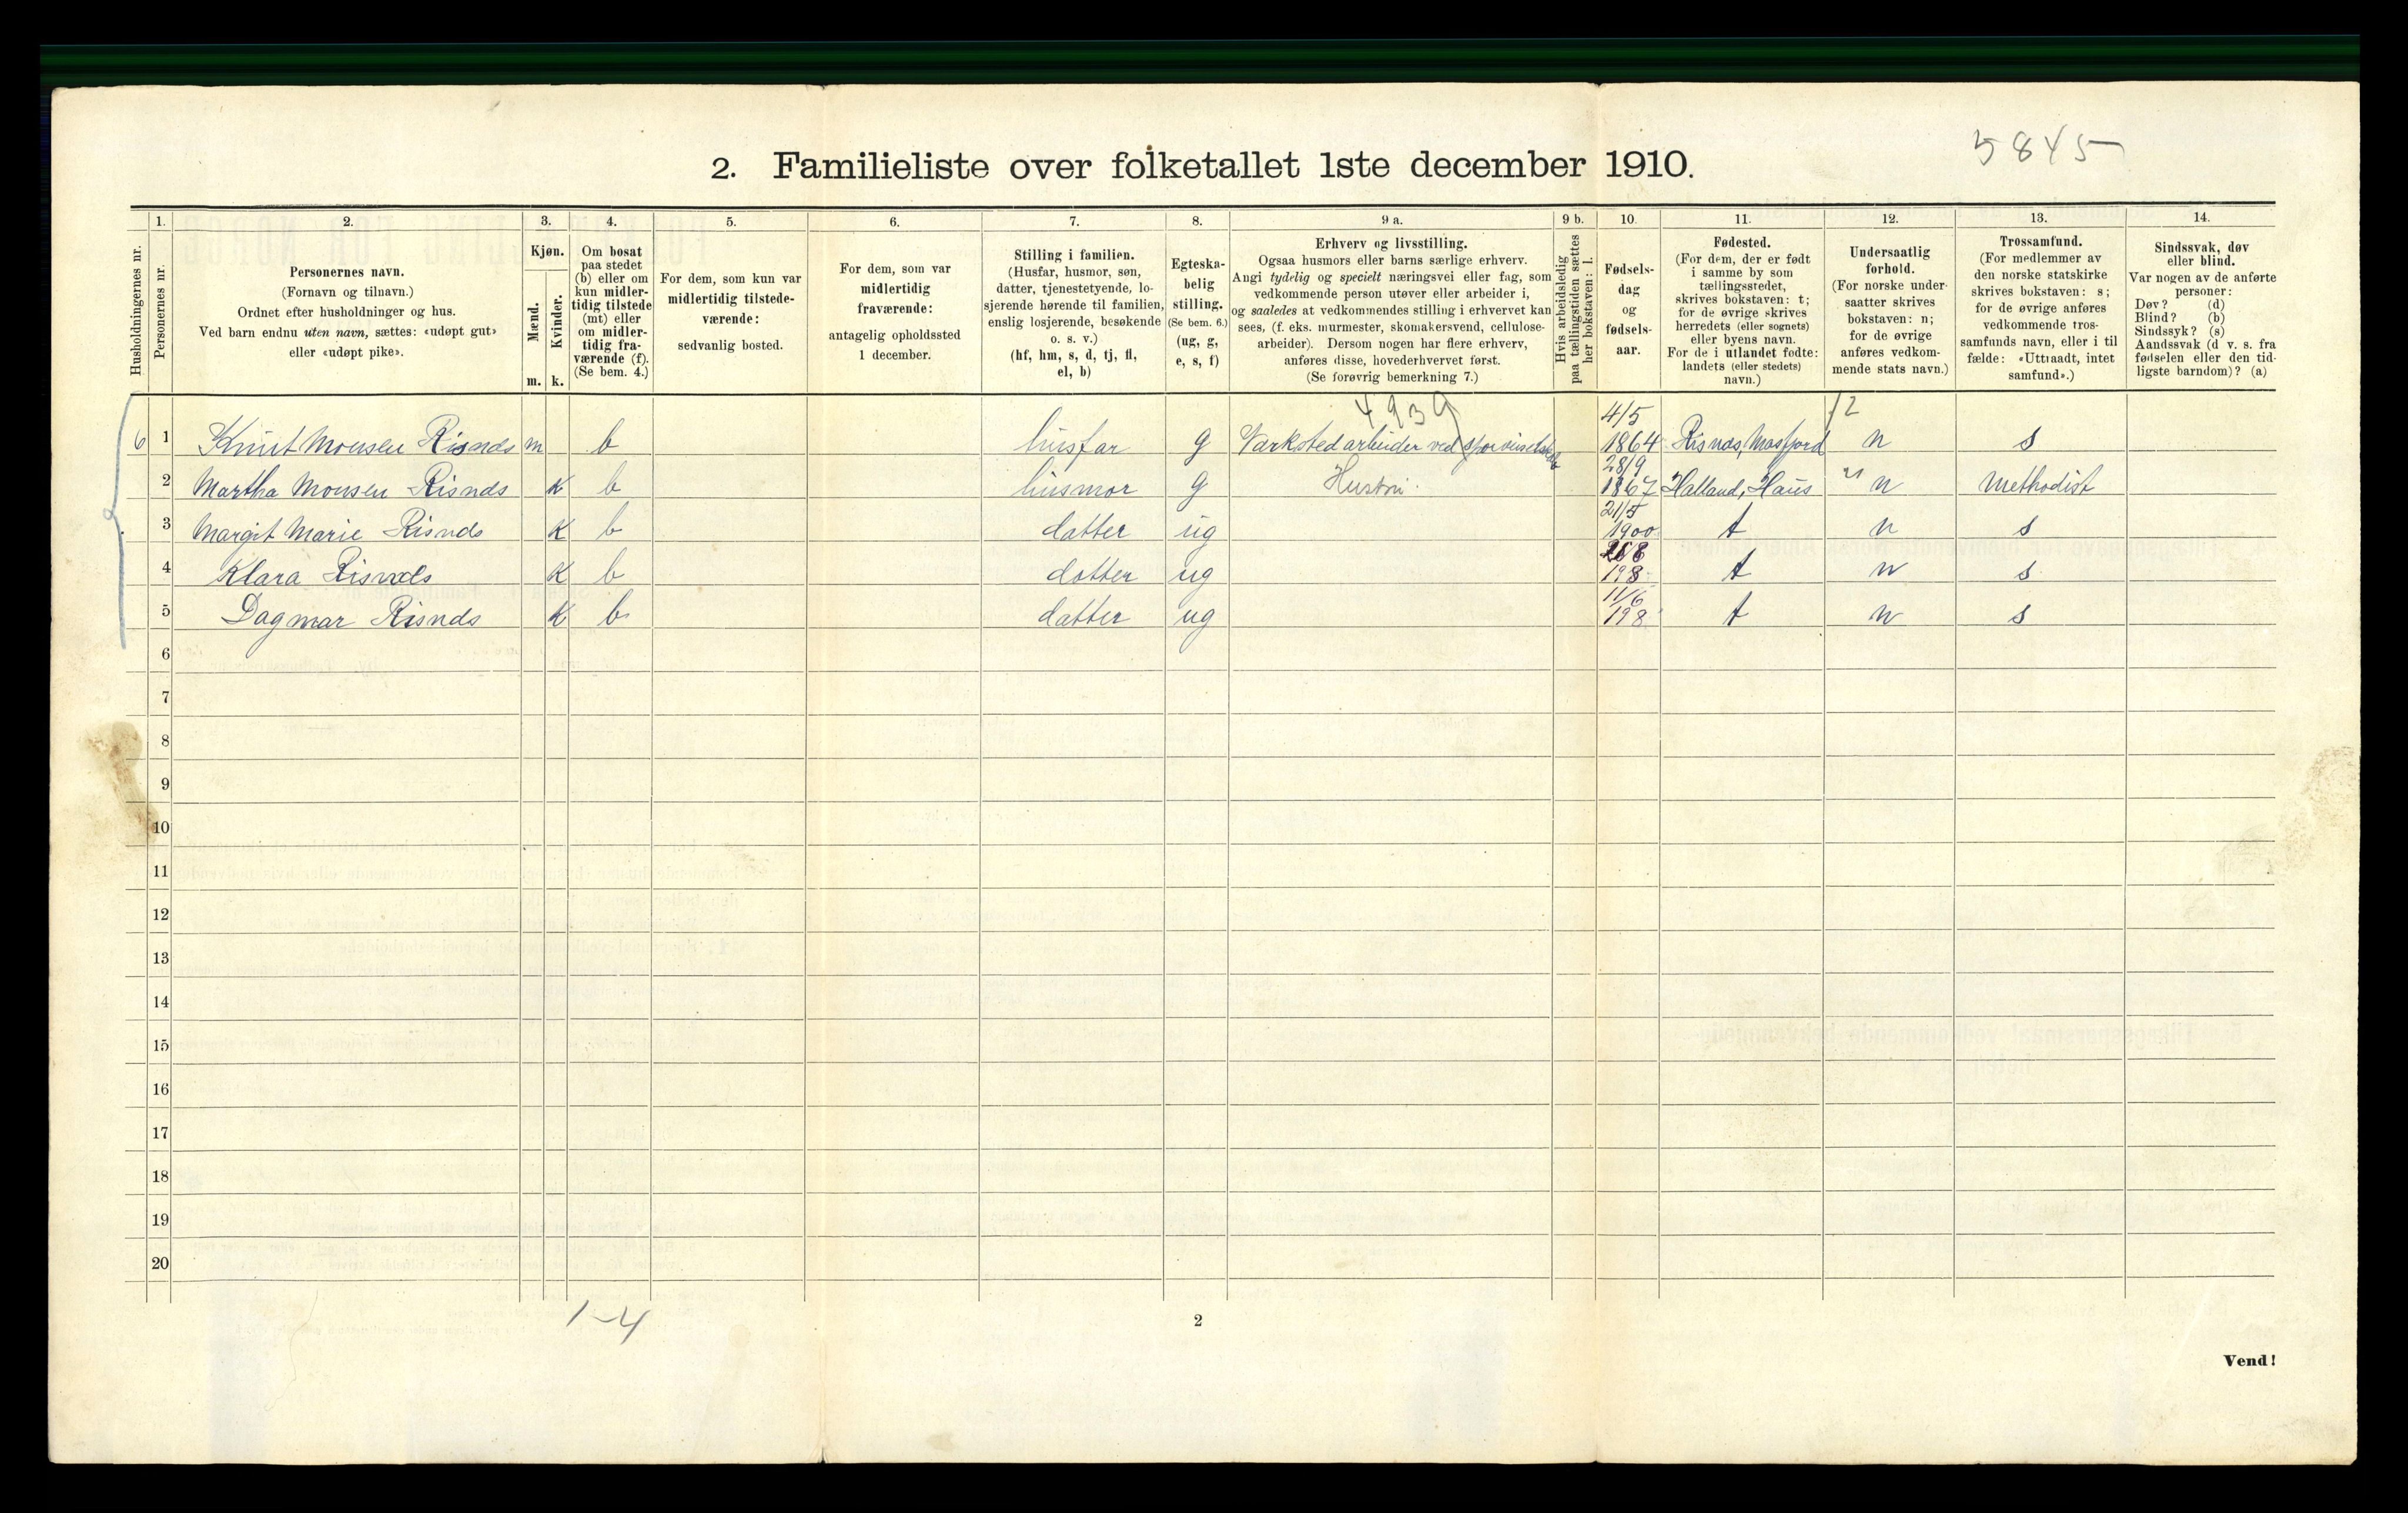 5845
2. Familieliste over folketallet 1ste december 1910.
Husholdningernes nr.
1.
Personernes nr.
2.
Personernes navn.
(Fornavn og tilnavn.)
Ordnet efter husholdninger og hus.
Ved barn endnu uten navn, sættes: «udøpt gut»
eller «udøpt pike».
3.
Kjøn.
Mænd.
Kvinder.
m. k.
4.
Om bosat
paa stedet
(b) eller om
kun midler-
tidig tilstede
(mt) eller
om midler-
tidig fra-
værende (f).
(Se bem. 4.)
5.
For dem, som kun var
midlertidig tilstede-
værende:
sedvanlig bosted.
6.
For dem, som var
midlertidig
fraværende:
antagelig opholdssted
1 december.
7.
Stilling i familien.
(Husfar, husmor, søn,
datter, tjenestetyende, lo-
sjerende hørende til familien,
enslig losjerende, besøkende
o. s. v.)
(hf, hm, s, d, tj, fl,
el, b)
8.
Egteska-
belig
stilling.
(Se bem. 6.)
(ug, g,
e, s, f)
9 a.
Erhverv og livsstilling.
Ogsaa husmors eller barns særlige erhverv.
Angi tydelig og specielt næringsvei eller fag, som
vedkommende person utøver eller arbeider i,
og saaledes at vedkommendes stilling i erhvervet kan
sees, (f. eks. murmester, skomakersvend, cellulose-
arbeider). Dersom nogen har flere erhverv,
anføres disse, hovederhvervet først.
(Se forøvrig bemerkning 7.)
9 b.
Hvis arbeidsledig
paa tællingstiden sættes
her bokstaven: l.
10.
Fødsels-
dag
og
fødsels-
aar.
11.
Fødested.
(For dem, der er født
i samme by som
tællingsstedet,
skrives bokstaven: t;
for de øvrige skrives
herredets (eller sognets)
eller byens navn.
For de i utlandet fødte:
landets (eller stedets)
navn.)
12.
Undersaatlig
forhold.
(For norske under-
saatter skrives
bokstaven: n;
for de øvrige
anføres vedkom-
mende stats navn.)
13.
Trossamfund.
(For medlemmer av
den norske statskirke
skrives bokstaven: s;
for de øvrige anføres
vedkommende tros-
samfunds navn, eller i til
fælde: «Uttraadt, intet
samfund».)
14.
Sindssvak, døv
eller blind.
Var nogen av de anførte
personer:
Døv? (d)
Blind? (b)
Sindssyk? (s)
Aandssvak (d v. s. fra
fødselen eller den tid-
ligste barndom)? (a)
4939 4/5 12
6 1 Knut Monsen Risnes m b husfar g Værksted arbeider ved 1864 Risnes, Masfjord n s
28/9
2 Martha Monsen Risnes k b husmor g Hustru. 1867 Halland, Haus n Methodist
21/5
3 Margit Marie Risnes k b datter ug 1900 t n s
4 Klara Risnes k b datter ug 198 t n s
11/6
5 Dagmar Risnes k b datter ug 198 t n s
6
7
8
9
10
11
12
13
14
15
16
17
18
19
20
1-4
2
Vend!